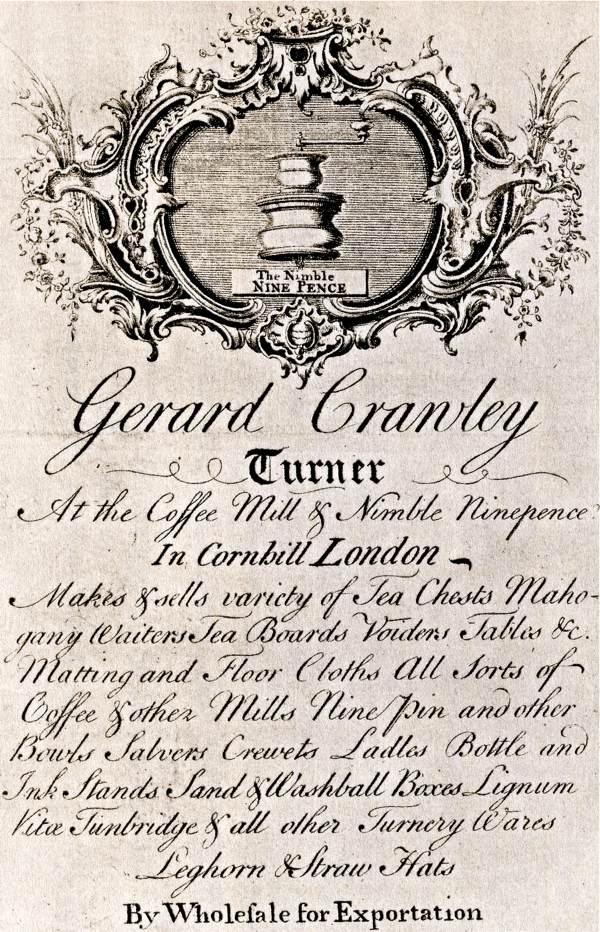 The Nimble
NINE PENCE
Gerard Crawley
Turner
At the Coffee Mill & Nimble Ninepence
In Cornhill London
Makes & sells variety of Tea Chests Maho-
gany Waiters Tea Boards Voiders Tables &c.
Matting and Floor Cloths All Sorts of
Coffee & other Mills Nine Pin and other
Bowls Salvers Crewets Ladles Bottle and
Ink Stands Sand & Washball Boxes Lignum
Vitæ Tunbridge & all other Turnery Wares
Leghorn & Straw Hats
By Wholeſale for Exportation